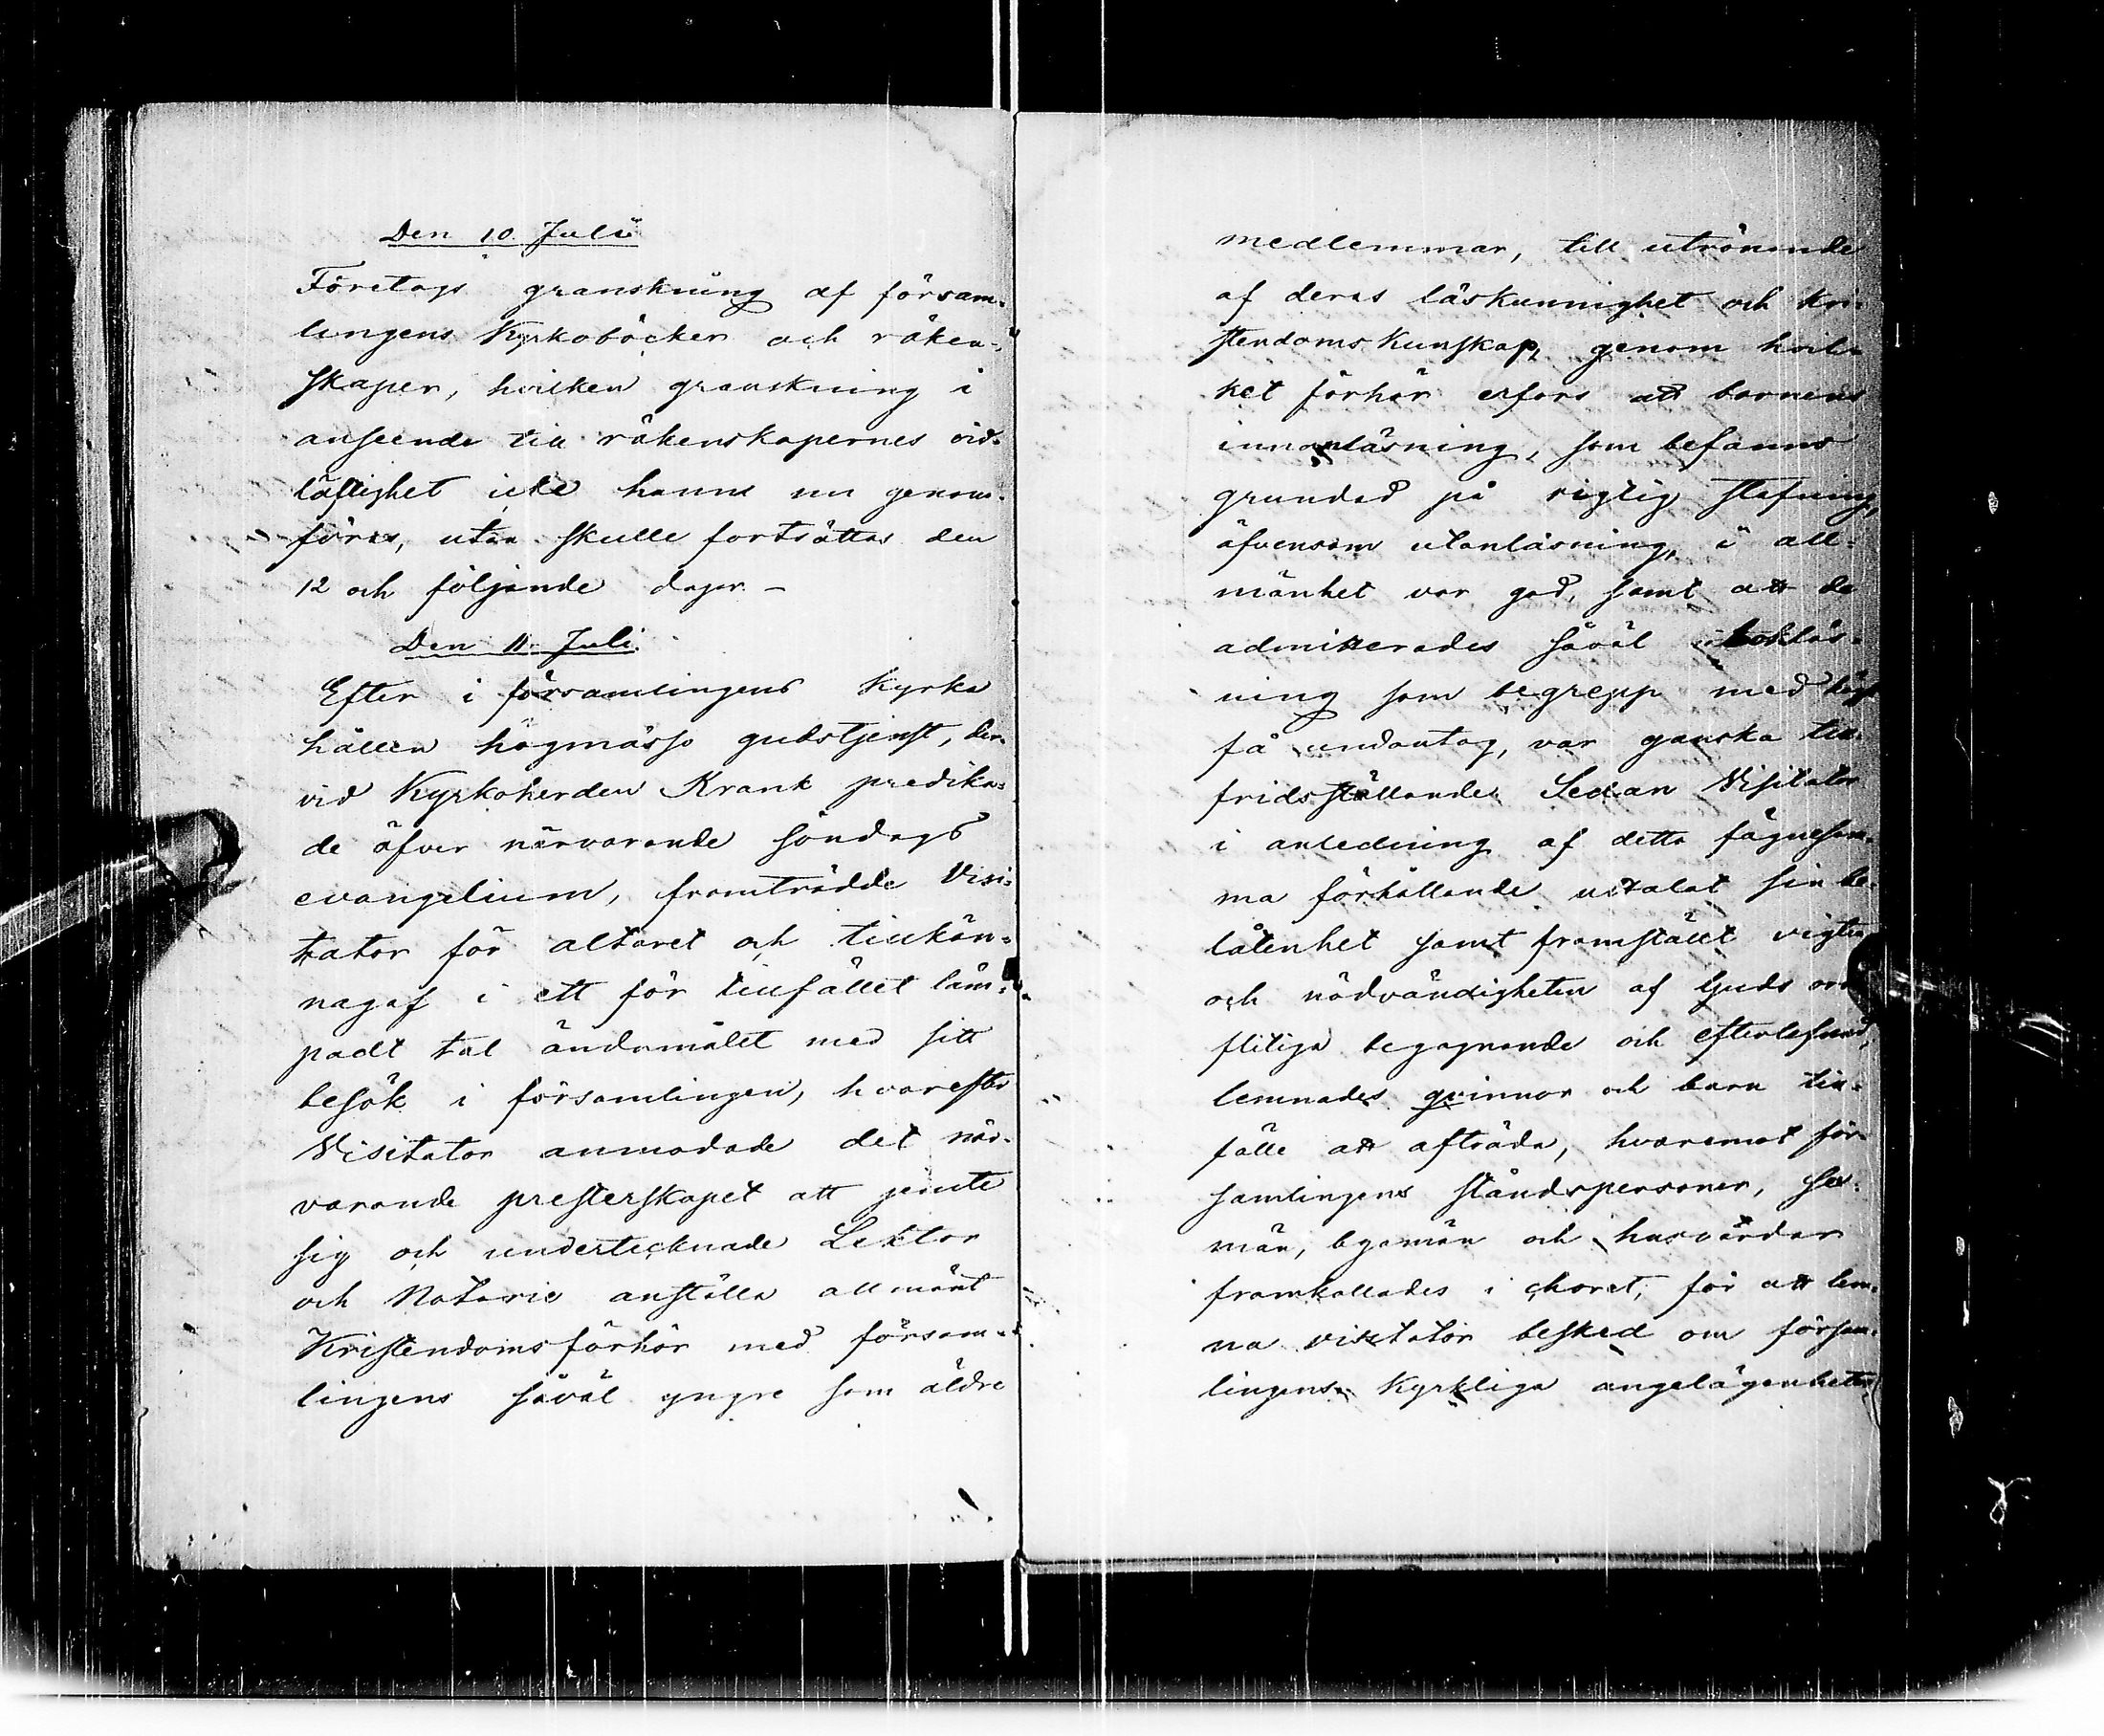 Den 10 Juli
Företogs granskning af försam-
lingens Kyrkoböcker och räken-
skaper, hvilken granskning i
anseende till räkenskapernes vid-
löftighet icke hanns nu genom-
föras, utan skulle fortsättas den
12 och följande dagar. -
Den 11 Juli.
Efter i församlingens Kyrka
hållen högmässo gudstjenst, der-
vid Kyrkoherden Krank predika-
de öfver närvarande söndags
evangelium, framträdde Visi-
tator för altaret och tillkän-
nagaf i ett för tillfället läm-
padt tal ändamålet med sitt
besök i församlingen, hvarefter
Visitator anmodade det när-
varande presterskapet att jemte
sig och undertecknade Lektor
och Notarie anställa allmänt
Kristendomsförhör med försam-
lingens såväl yngre som äldre
medlemmar, till utrönande
af deras läskunnighet och kri-
stendoms kunskap, genom hvil-
ket förhör erfors att barnens
innanläsning, som befanns
grundad på rigtig stafning,
äfvensom utanläsning, i all-
mänhet var god, samt att de
admitterades såväl bokläs-
ning som begrepp med högst
få undantag, var ganska till-
fridsställande. Sedan Visitator
i anledning af detta fägnesam-
ma förhållande uttalat sin be-
låtenhet samt framställt vigten
och nödvändigheten af Guds ords
flitiga begagnande och efterlefnad,
lemnades qvinnor och barn till-
fälle att afträda, hvaremot för-
samlingens ståndspersoner, sex-
män, byamän och husvärdar
framkallades i choret, för att lem-
na visitator besked om försam-
lingens Kyrkliga angelägenheter